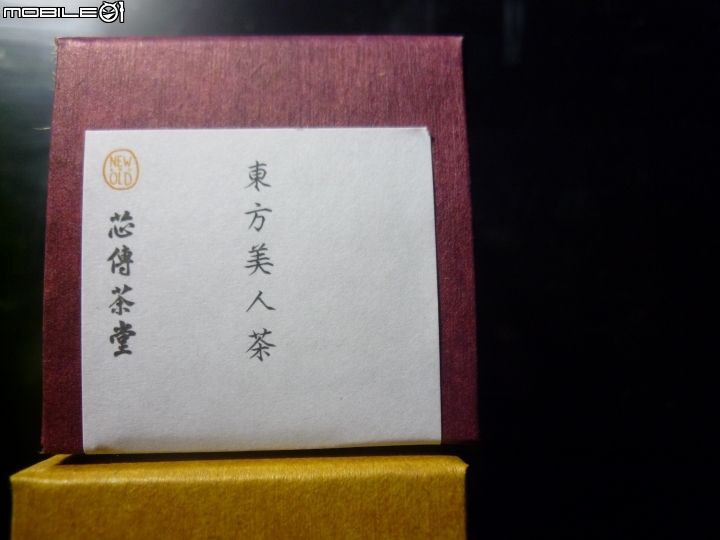 MOBILE01
NEW
OLD
東方美人茶
芯傳茶堂